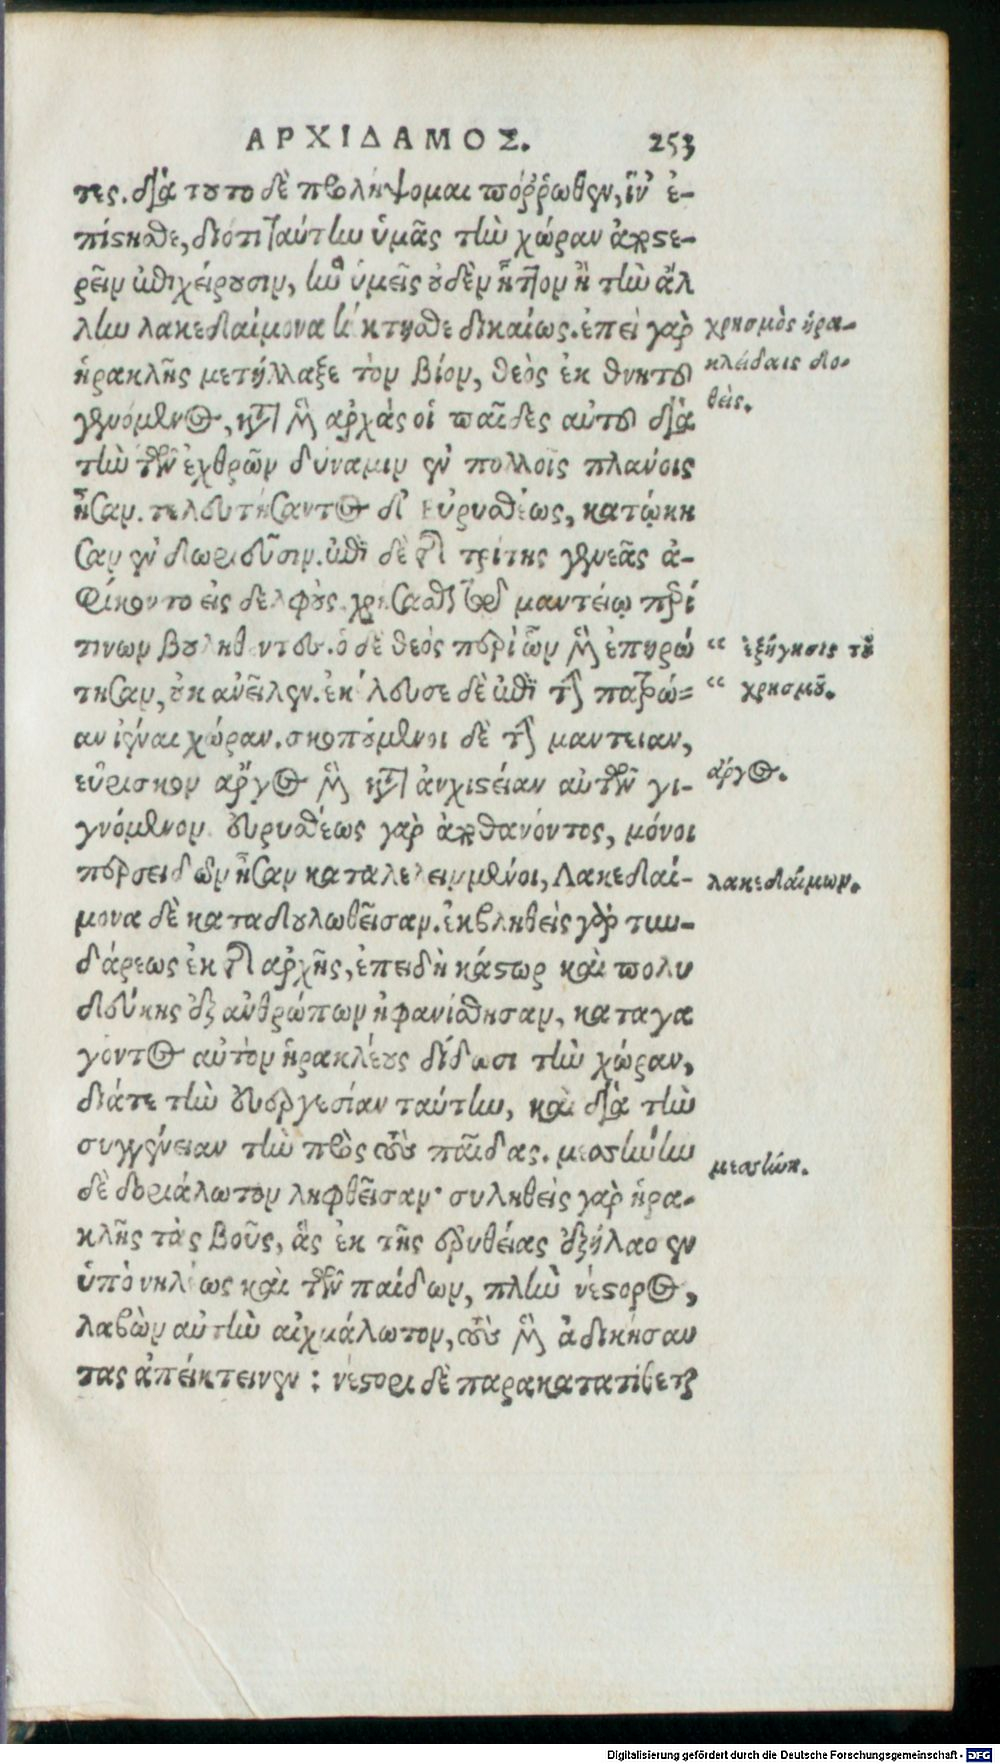 ΑΡΧΙΔΑΜΟΣ. 253
τες. διὰ τουτο δὲ προλήψομαι πόῤῥωθεν, ἵν' ἐ-
πίστησθε, διότι ταύτην ὑμᾶς τὴν χώραν ἀποστε-
ρεῖν ἐπιχείρουσιν, ἣν ὑμεῖς οὐδὲν ἧττον ἢ τὴν ἄλ
λην λακεδαίμονα ἐκτησθε δικαίως. ἐπεὶ γὰρ
ἡρακλῆς μετήλλαξε τὸν βίον, θεὸς ἐκ θνητοῦ
γενόμενος, κατ' ἀρχὰς οἱ παῖδες αὐτοῦ διὰ
τὴν τῶν ἐχθρῶν δύναμιν ἐν πολλοῖς πλάνοις
ἦσαν. τελευτήσαντος δ' Εὐρυσθέως, κατῴκη
σαν ἐν δωριεῦσιν. ἐπὶ δὲ τῆς τρίτης γενεᾶς ἀ-
φίκοντο εἰς δελφοὺς, χρήσασθαι τῷ μαντείῳ περί
τινων βουληθέντες. ὁ δὲ θεὸς περὶ ὧν μὲν ἐπηρώ
τησαν, οὐκ ἀνεῖλεν. ἐκέλευσε δὲ ἐπὶ τὴν πατρώ-
αν ἰέναι χώραν. σκοπούμενοι δὲ τὴν μαντειαν,
εὕρισκον ἄργος μὲν κατ' ἀνχιστείαν αὐτῶν γι-
γνόμενον. Εὐρυσθέως γὰρ ἀποθανόντος, μόνοι
περσειδῶν ἦσαν καταλελειμμένοι, Λακεδαί-
μονα δὲ καταδουλωθεῖσαν. ἐκβληθεὶς γὰρ τυν-
δάρεως ἐκ τῆς ἀρχῆς, ἐπειδὴ κάστωρ καὶ πολυ
δεύκης ἐξ ἀνθρώπων ἠφανίσθησαν, καταγα
γόντος αὐτὸν ἡρακλέους δίδωσι τὴν χώραν,
διάτε τὴν εὐεργεσίαν ταύτην, καὶ διὰ τὴν
συγγένειαν τὴν πρὸς τοὺς παῖδας. μεσσήνην
δὲ δοριάλωτον ληφθεῖσαν· συληθεὶς γὰρ ἡρα-
κλῆς τὰς βοῦς, ἃς ἐκ τῆς ἐρυθείας ἐξήλασεν
ὑπὸ νηλέως καὶ τῶν παίδων, πλὴν νέστορος,
λαβὼν αὐτὴν αἰχμάλωτον, τοὺς μὲν ἀδικήσαν
τας ἀπέκτεινεν : νέστορι δὲ παρακατατίθεται
χρησμὸς ἡρα-
κλείδαις δο-
θείς.
“ ἐξήγησις τοῦ
“ χρησμοῦ.
ἄργος.
λακεδαίμων.
μεσσήνη.
Digitalisierung gefördert durch die Deutsche Forschungsgemeinschaft - DFG